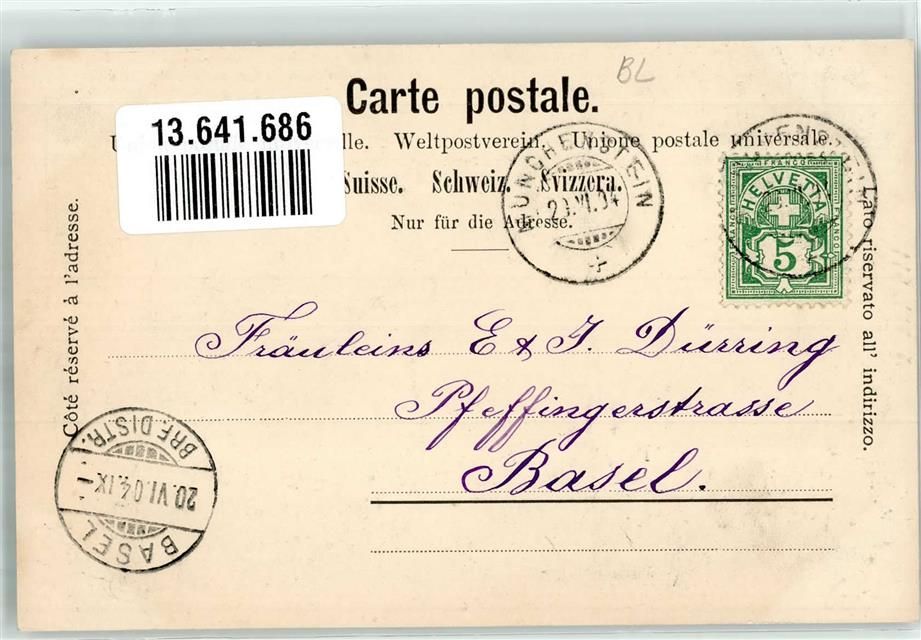 BL
Carte postale.
13.641.686
Weltpostverein. Unione postale universale.
Suisse. Schweiz. Svizzera.
Nur für die Adresse.
MÜNCHENSTEIN
VI.04
FRANCO
HELVETIA
FRANCO
FRANCO
5
Côté réservé à l'adresse.
Lato riservato all' indirizzo.
Fräuleins E & J. Dürring
Pfeffingerstrasse
Basel.
BRF. DISTR.
20.VI.04.IX-
BASEL